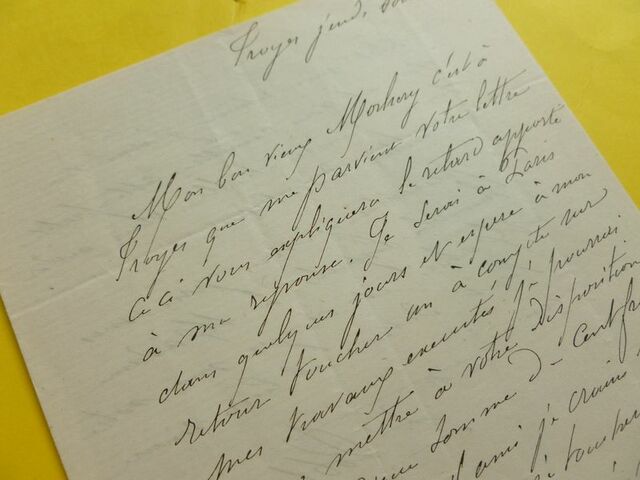 Troyes jeudi
Mon bon vieux Morhery c'est à
Troyes que me parvient votre lettre
ceci vous expliquera le retard apporté
à ma réponse. Je serai à Paris
dans quelques jours et espere à mon
retour toucher un à compte sur
mes travaux executés je pourrai
mettre à votre disposition
une somme de cent fr
ami je crains
toucher